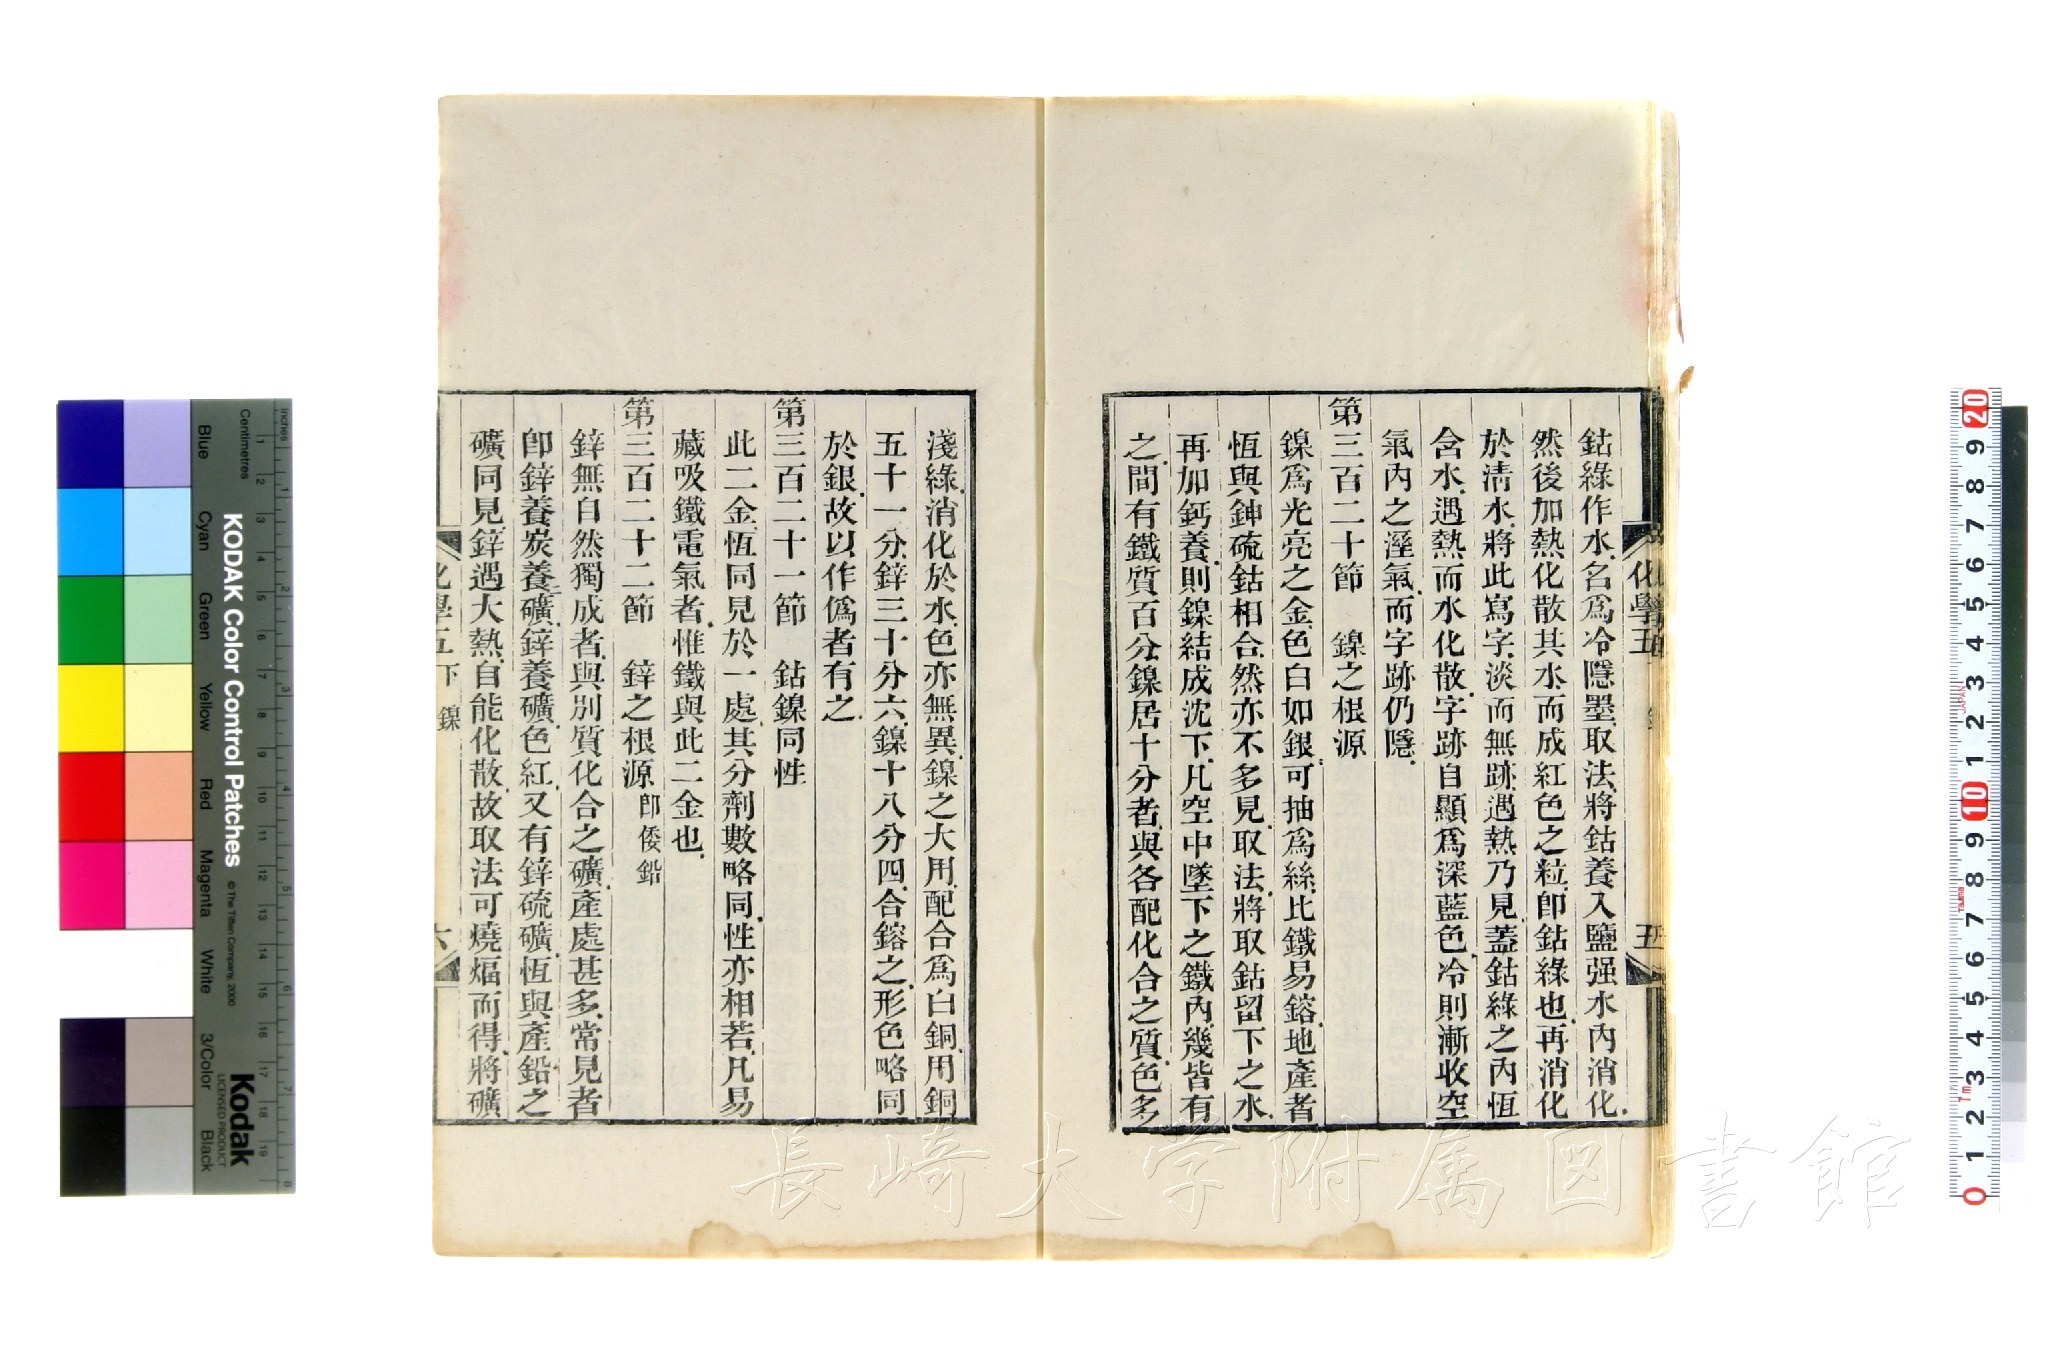 鈷綠作水、名爲冷隱墨、取法、將鈷養入鹽强水內消化、
然後加熱化散其水而成紅色之粒、卽鈷綠也、再消化
於淸水、將此寫字、淡而無跡、遇熱乃見、蓋鈷綠之內恆
含水、遇熱而水化散、字跡自顯爲深藍色、冷則漸收空
氣內之溼氣、而字跡仍隱、
第三百二十節　鎳之根源
鎳爲光亮之金、色白如銀、可抽爲絲、比鐵易鎔、地產者
恆與鉮硫鈷相合、然亦不多見、取法、將取鈷留下之水、
再加鈣養、則鎳結成沈下、凡空中墜下之鐵內、幾皆有
之、間有鐵質百分、鎳居十分者、與各配化合之質、色多
化學五
五
淺綠、消化於水、色亦無異、鎳之大用、配合爲白銅、用銅
五十一分、鋅三十分六、鎳十八分四、合鎔之、形色略同
於銀、故以作僞者有之、
第三百二十一節　鈷鎳同性
此二金、恆同見於一處、其分劑數略同、性亦相若、凡易
藏吸鐵電氣者、惟鐵與此二金也、
第三百二十二節　鋅之根源 卽倭鉛
鋅無自然獨成者、與別質化合之礦、產處甚多、常見者
卽鋅養炭養礦、鋅養礦、色紅、又有鋅硫礦、恆與產鉛之
礦同見、鋅遇大熱、自能化散、故取法可燒煏而得、將礦
化學五下 鎳
六
KODAK Color Control Patches
© The Tiffen Company, 2000
Kodak
LICENSED PRODUCT
Inches
Centimetres
Blue
Cyan
Green
Yellow
Red
Magenta
White
3/Color
Black
1 2 3 4 5 6 7 8
1 2 3 4 5 6 7 8 9 10 11 12 13 14 15 16 17 18 19
20 9 8 7 6 5 4 3 2 1 10 9 8 7 6 5 4 3 2 1 0
JAPAN
長崎大学附属図書館